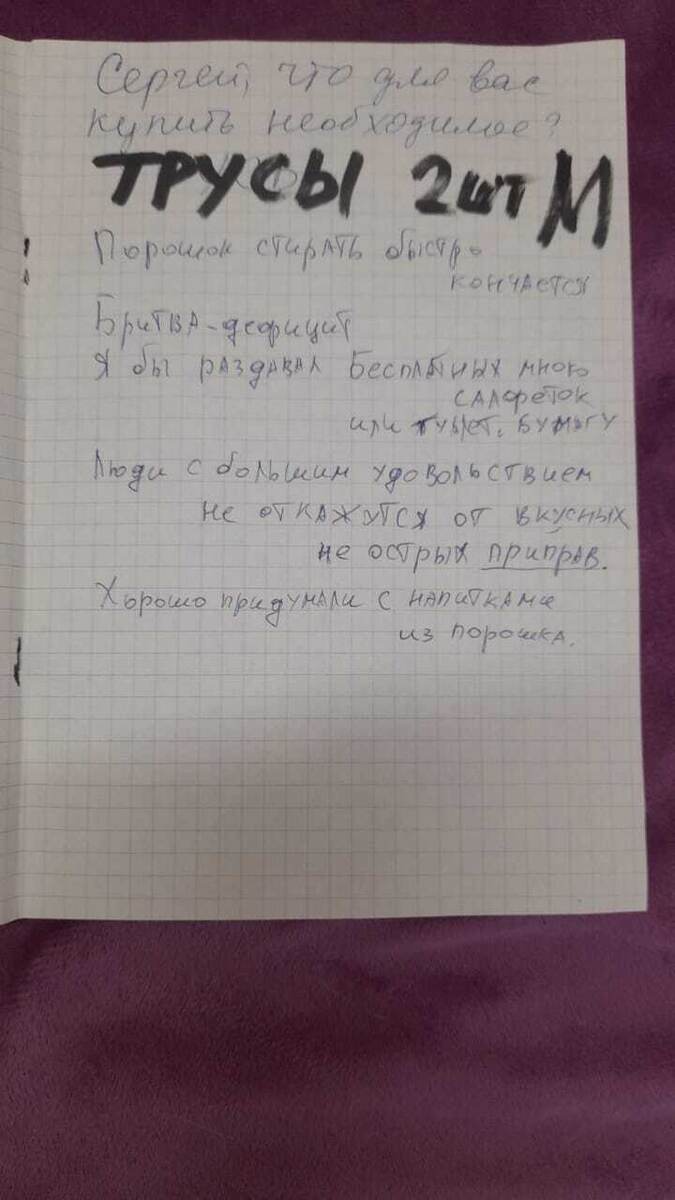 Сергей, что для вас
купить необходимое?
ТРУСЫ 2 шт М
Порошок стирать быстро
кончается
Бритва-дефицит
Я бы раздавал Бесплатных много
салфеток
или туалет. бумагу
Люди с большим удовольствием
не откажутся от вкусных
не острых приправ.
Хорошо придумали с напитками
из порошка.